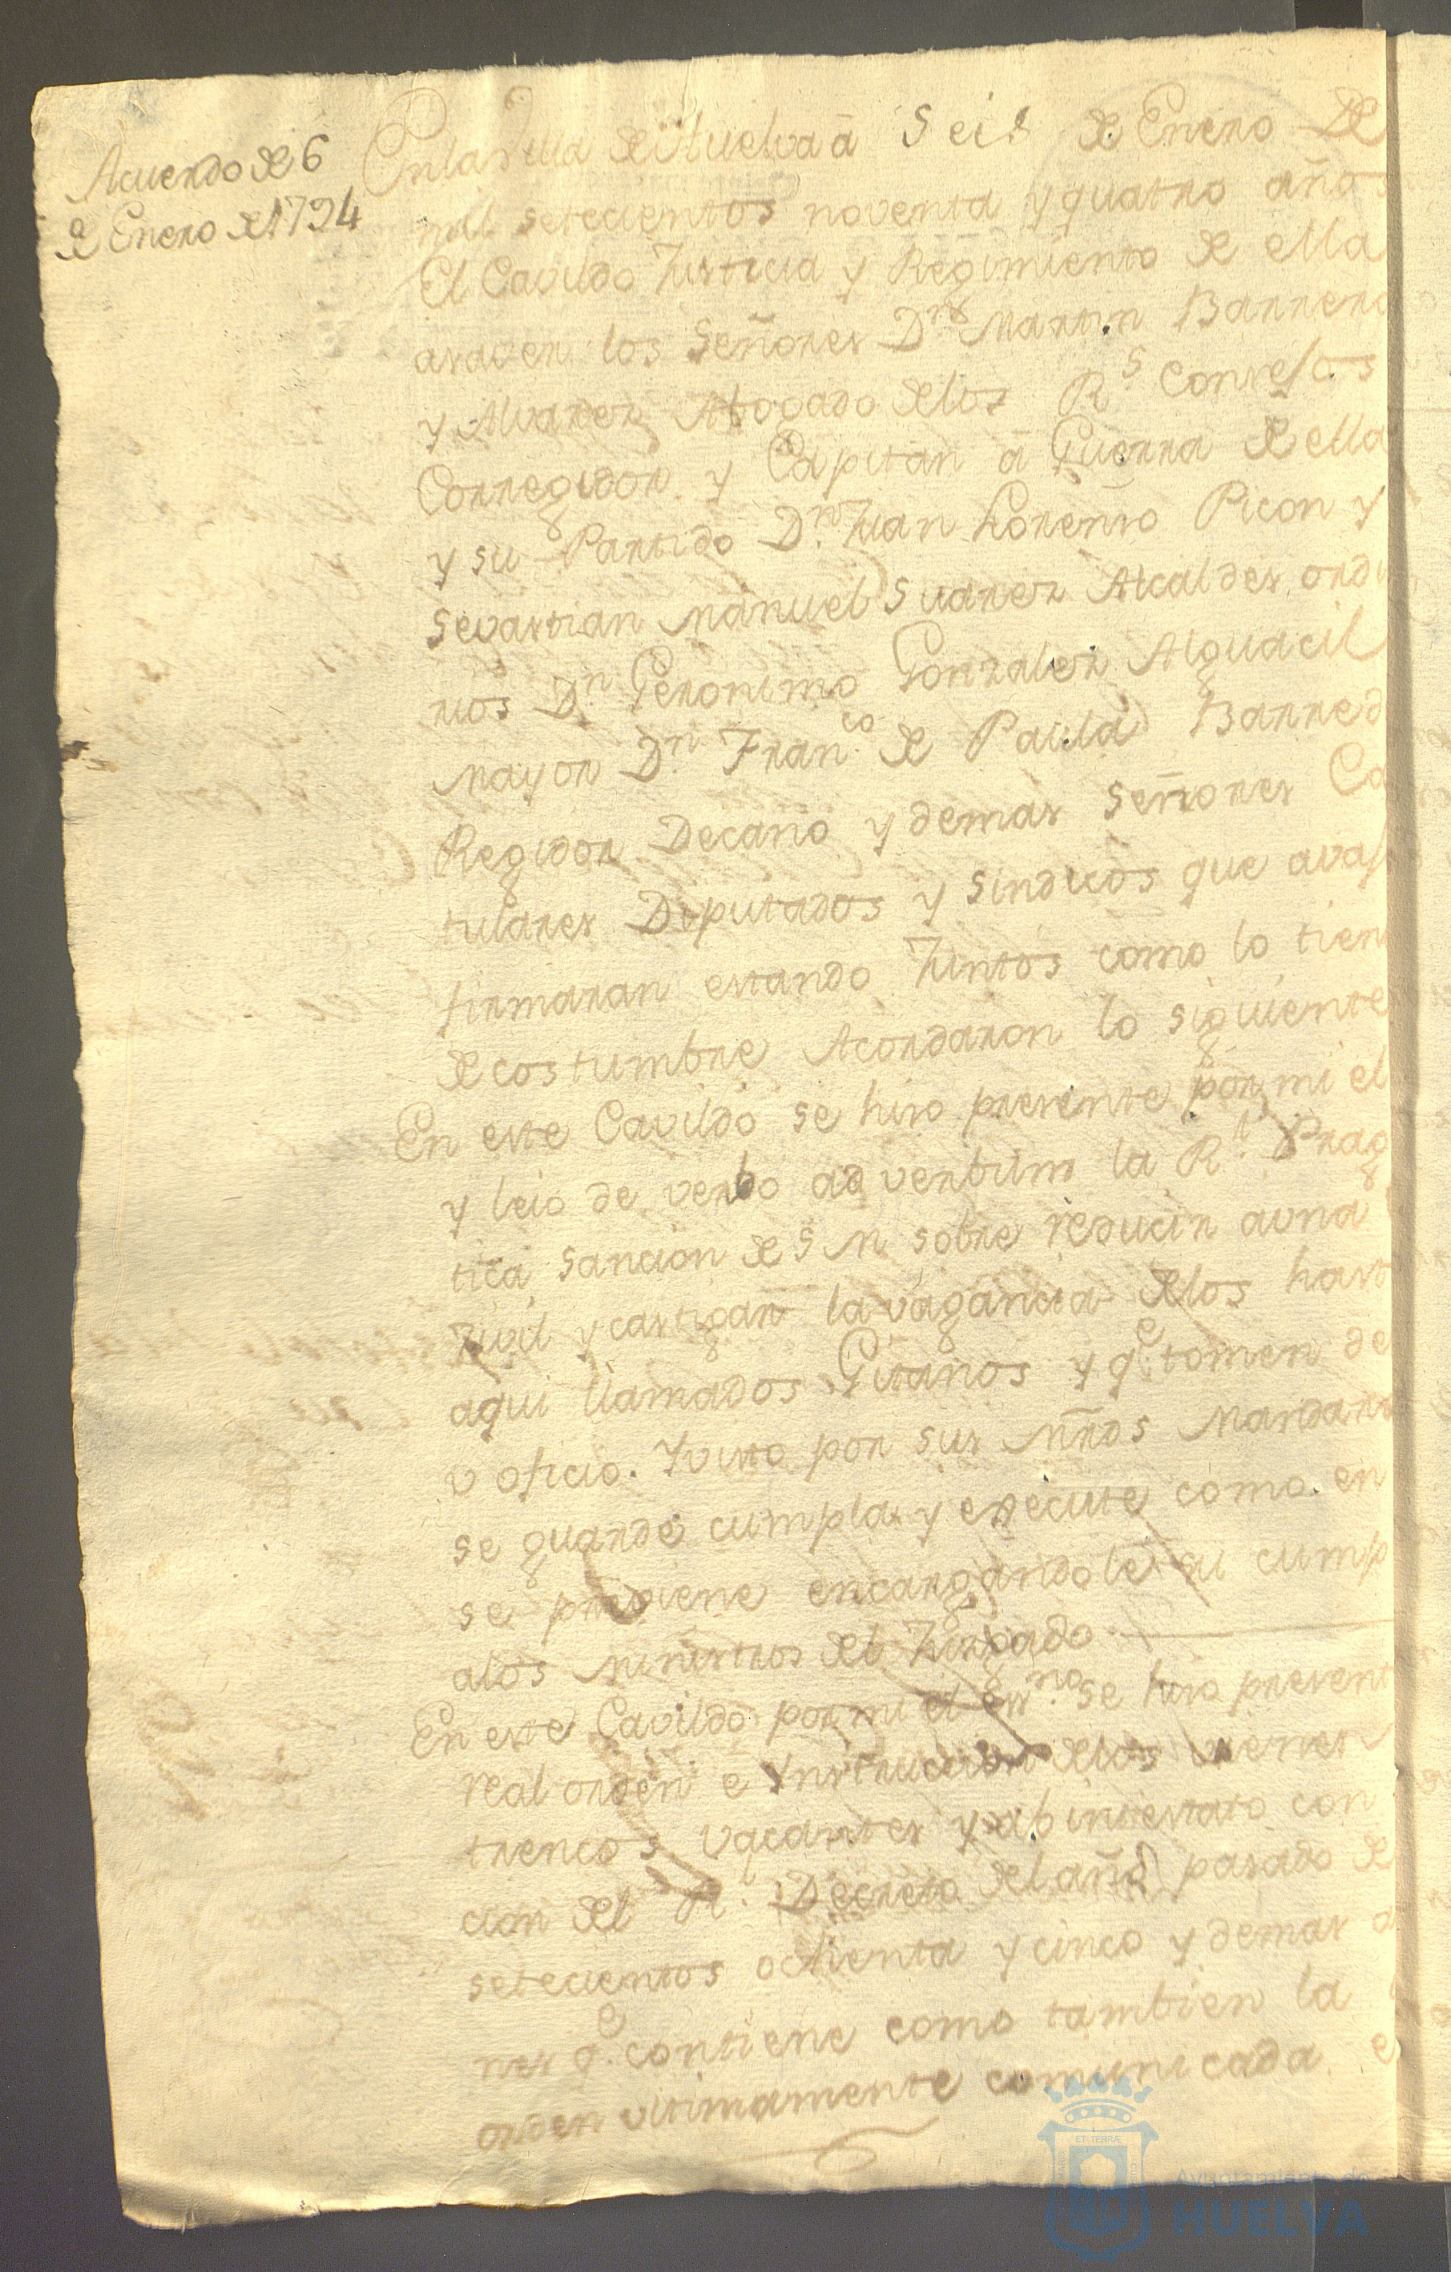 Acuerdo de 6
de Enero de 1794
En la Villa de Huelva â Seis de Enero De
mil setecientos noventa y quatro años
El Cavildo Justicia y Regimiento de ella
asaver los Señores Dn Martin Barrera
y Alvarez Abogado delos Rs Consejos
Corregidor y Capitan â Guerra de ella
y su Partido Dn Juan Lorenso Picon y
Sevastian Manuel Suarez Alcaldes ordi
rios Dn Geronimo Gonzalez Alguacil
mayor Dn Franco de Paula Barred
Regidor Decano y demas Señores Ca
tulares Diputados y Sindicos que avaj
firmaran estando Juntos como lo tien
de costumbre Acordaron lo siguiente
En este Cavildo se hiso presente por mi el
y leio de verbo ad verbum la Rl Prag
tica Sancion de S M sobre reducir avna
Zivil y castigar la vagancia delos hast
aqui llamados Gitanos y qe tomen de
v oficio. Y visto por sus Mrds Mandaro
se guarde cumpla y execute como en
se previene encargandole su cump
alos Ministros del Juzgado
En este Cavildo por mi el Essno se hiso present
real orden e Ynstruccion delos vienes
trencos vacantes y abintestato con
cion del Rl Decreto del año pasado de
setecientos ochenta y cinco y demas o
nes qe contiene como tambien la
orden vltimamente comunicada e
ET TERRÆ
Ayuntamiento de
HUELVA